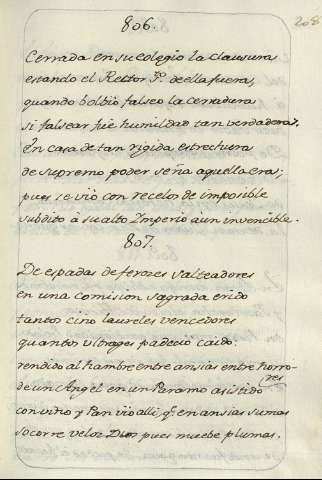 806.
208
Cerrada en su colegio la clausura
estando el Rector Y.º de ella fuera,
quando bolbió falseo la cerradura
si falsear fué humildad tan verdadera.
En casa de tan rigida estrechura
de supremo poder seña aquella era;
pues se vió con recelos de imposible
subdito á su alto Imperio aún invencible.
807.
De espadas de ferozes salteadores
en una comision sagrada erido
tantos cino laureles vencedores
quantos ultrages padeció caido.
rendido al hambre entre ansias entre horro-
(res
de un Angel en un Paramo asistido
con vino y Pan vio alli, q.e en ansias sumas
socorre veloz Dios pues muebe plumas.